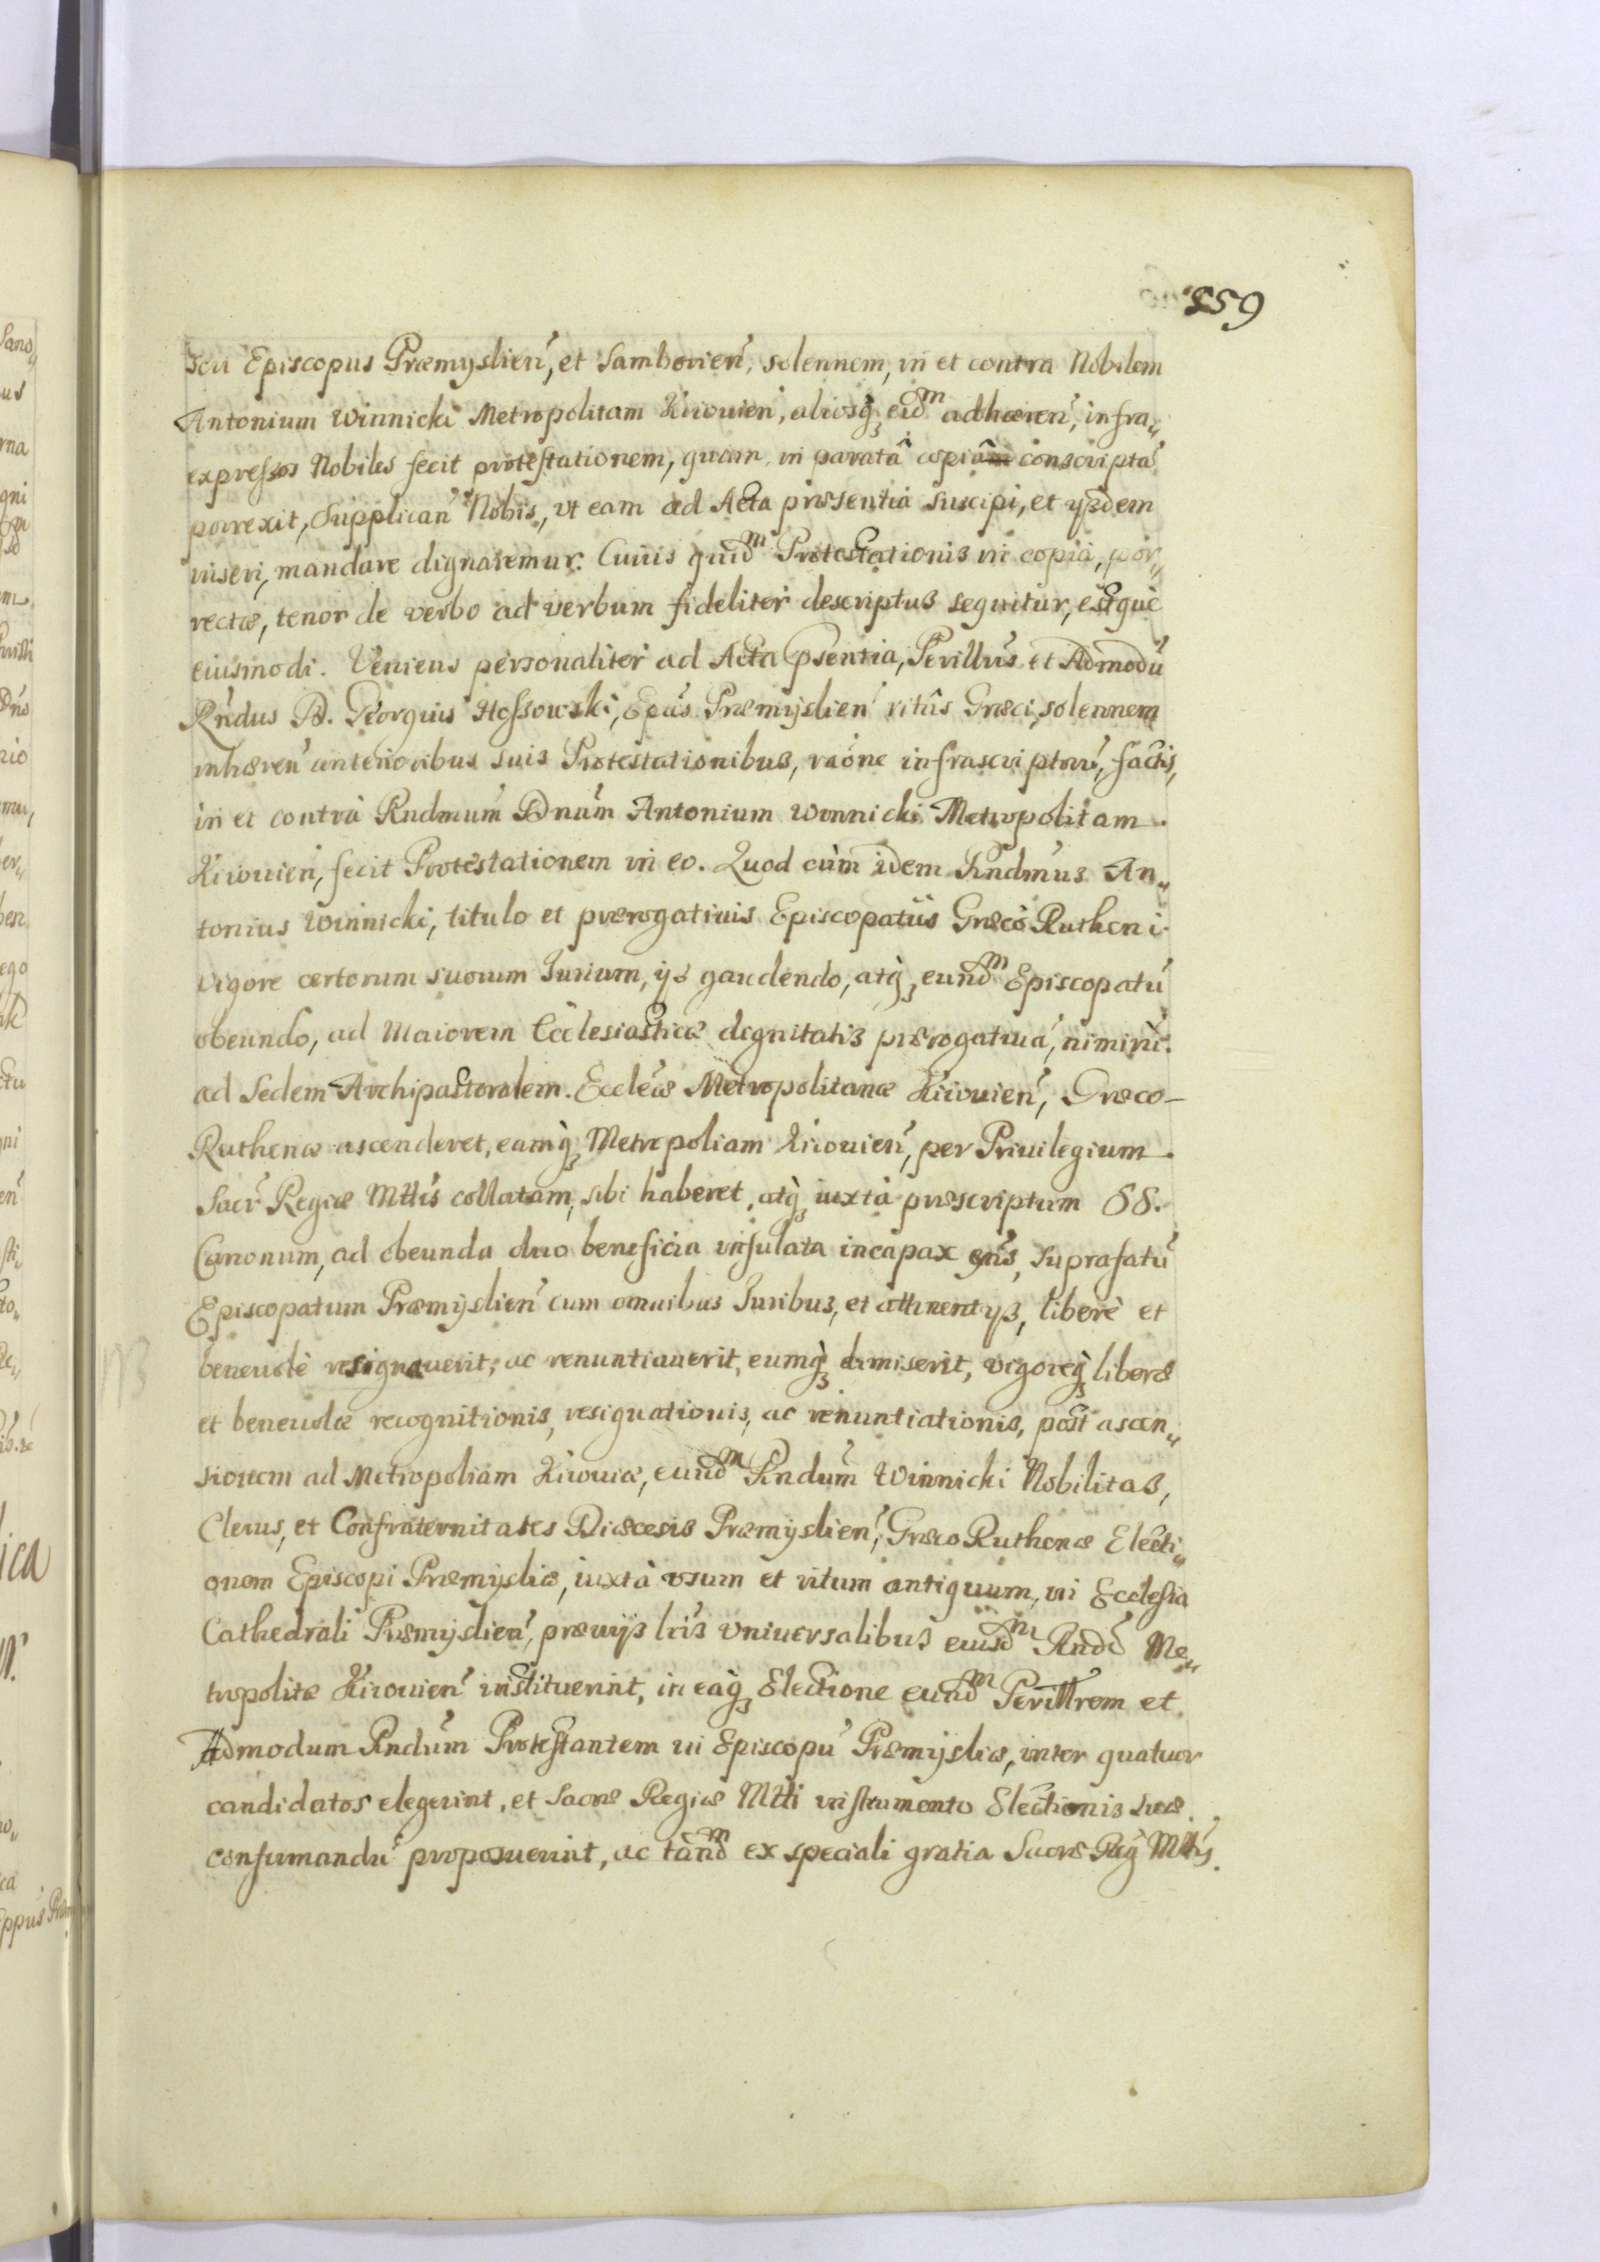 559
seu Episcopus Præmyslien̄, et Samborien̄, solennem, in et contra Nobilem
Antonium Winnicki Metropolitam Kiiouien̄, aliosq̨ eidm adhæren̄, infra„
expressos Nobiles fecit protestationem, quam in paratâ copiâ conscriptā
porrexit, Supplican̄ Nobis, vt eam ad Acta præsentia suscipi, et ijsdem
inseri, mandare dignaremur. Cuius quidm Protestationis in copia, por„
rectæ, tenor de verbo ad verbum fideliter descriptus sequitur, estque
eiusmodi. Veniens personaliter ad Acta p̄sentia, Perillus̄ et Admodū
Rn̄dus D. Georgius Hoſsowski, Ep̄us Præmyslien̄ ritûs Græci, solennem
inhæren̄ anterioribus suis Protestationibus, rāōne infrascriptorū, factis,
in et contrà Rndmum̄ Dnum̄ Antonium Winnicki Metropolitam
Kiiouien̄, fecit Protestationem in eo. Quod cùm idem Rndmus̄ An„
tonius Winnicki, titulo et prærogatiuis Episcopatûs Græco Rutheni
vigore certorum suorum Iurium, ijs gaudendo, atq̨ eundm Episcopatū
obeundo, ad Maiorem Ecclesiasticæ dignitatis prærogatiuā, nimirū
ad Sedem Archipastoralem Eccleīæ Metropolitanæ Kiiouien̄, Græco-
Ruthenæ ascenderet, eamq̨ Metropoliam Kiiouien̄, per Priuilegium
Sacr̄ Regiæ Mttis̄ collatam, sibi haberet, atq̨ iuxtà præscriptum SS.
Canonum, ad obeunda duo beneficia insulata incapax ens̄, suprafatū
Episcopatum Præmyslien̄ cum omnibus Iuribus, et attinentijs, liberè et
beneuolè resignauerit, ac renuntiauerit, eumq̨ dimiserit, vigoreq̨ liberæ
et beneuolæ recognitionis, resignationis, ac renuntiationis, post ascen„
sionem ad Metropoliam Kiiouiæ, eundm Rndum̄ Winnicki Nobilitas,
Clerus, et Confraternitates Diæcesis Præmyslien̄, Græco Ruthenæ Electi„
onem Episcopi Præmysliæ, iuxtà vsum et ritum antiquum, in Ecclesia
Cathedrali Præmyslien̄, præuijs lris̄ vniuersalibus eiusdm Rndī Me„
tropolitæ Kiiouien̄ instituerint, in eaq̨ Electione eundm Perillrem et
Admodum Rndum̄ Protestantem in Episcopū Præmysliæ, inter quatuor
candidatos elegerint, et Sacræ Regiæ Mtti instrumento Electionis suæ
confirmandū proposuerint, ac tandm ex speciali gratia Sacræ Reḡ Mttis